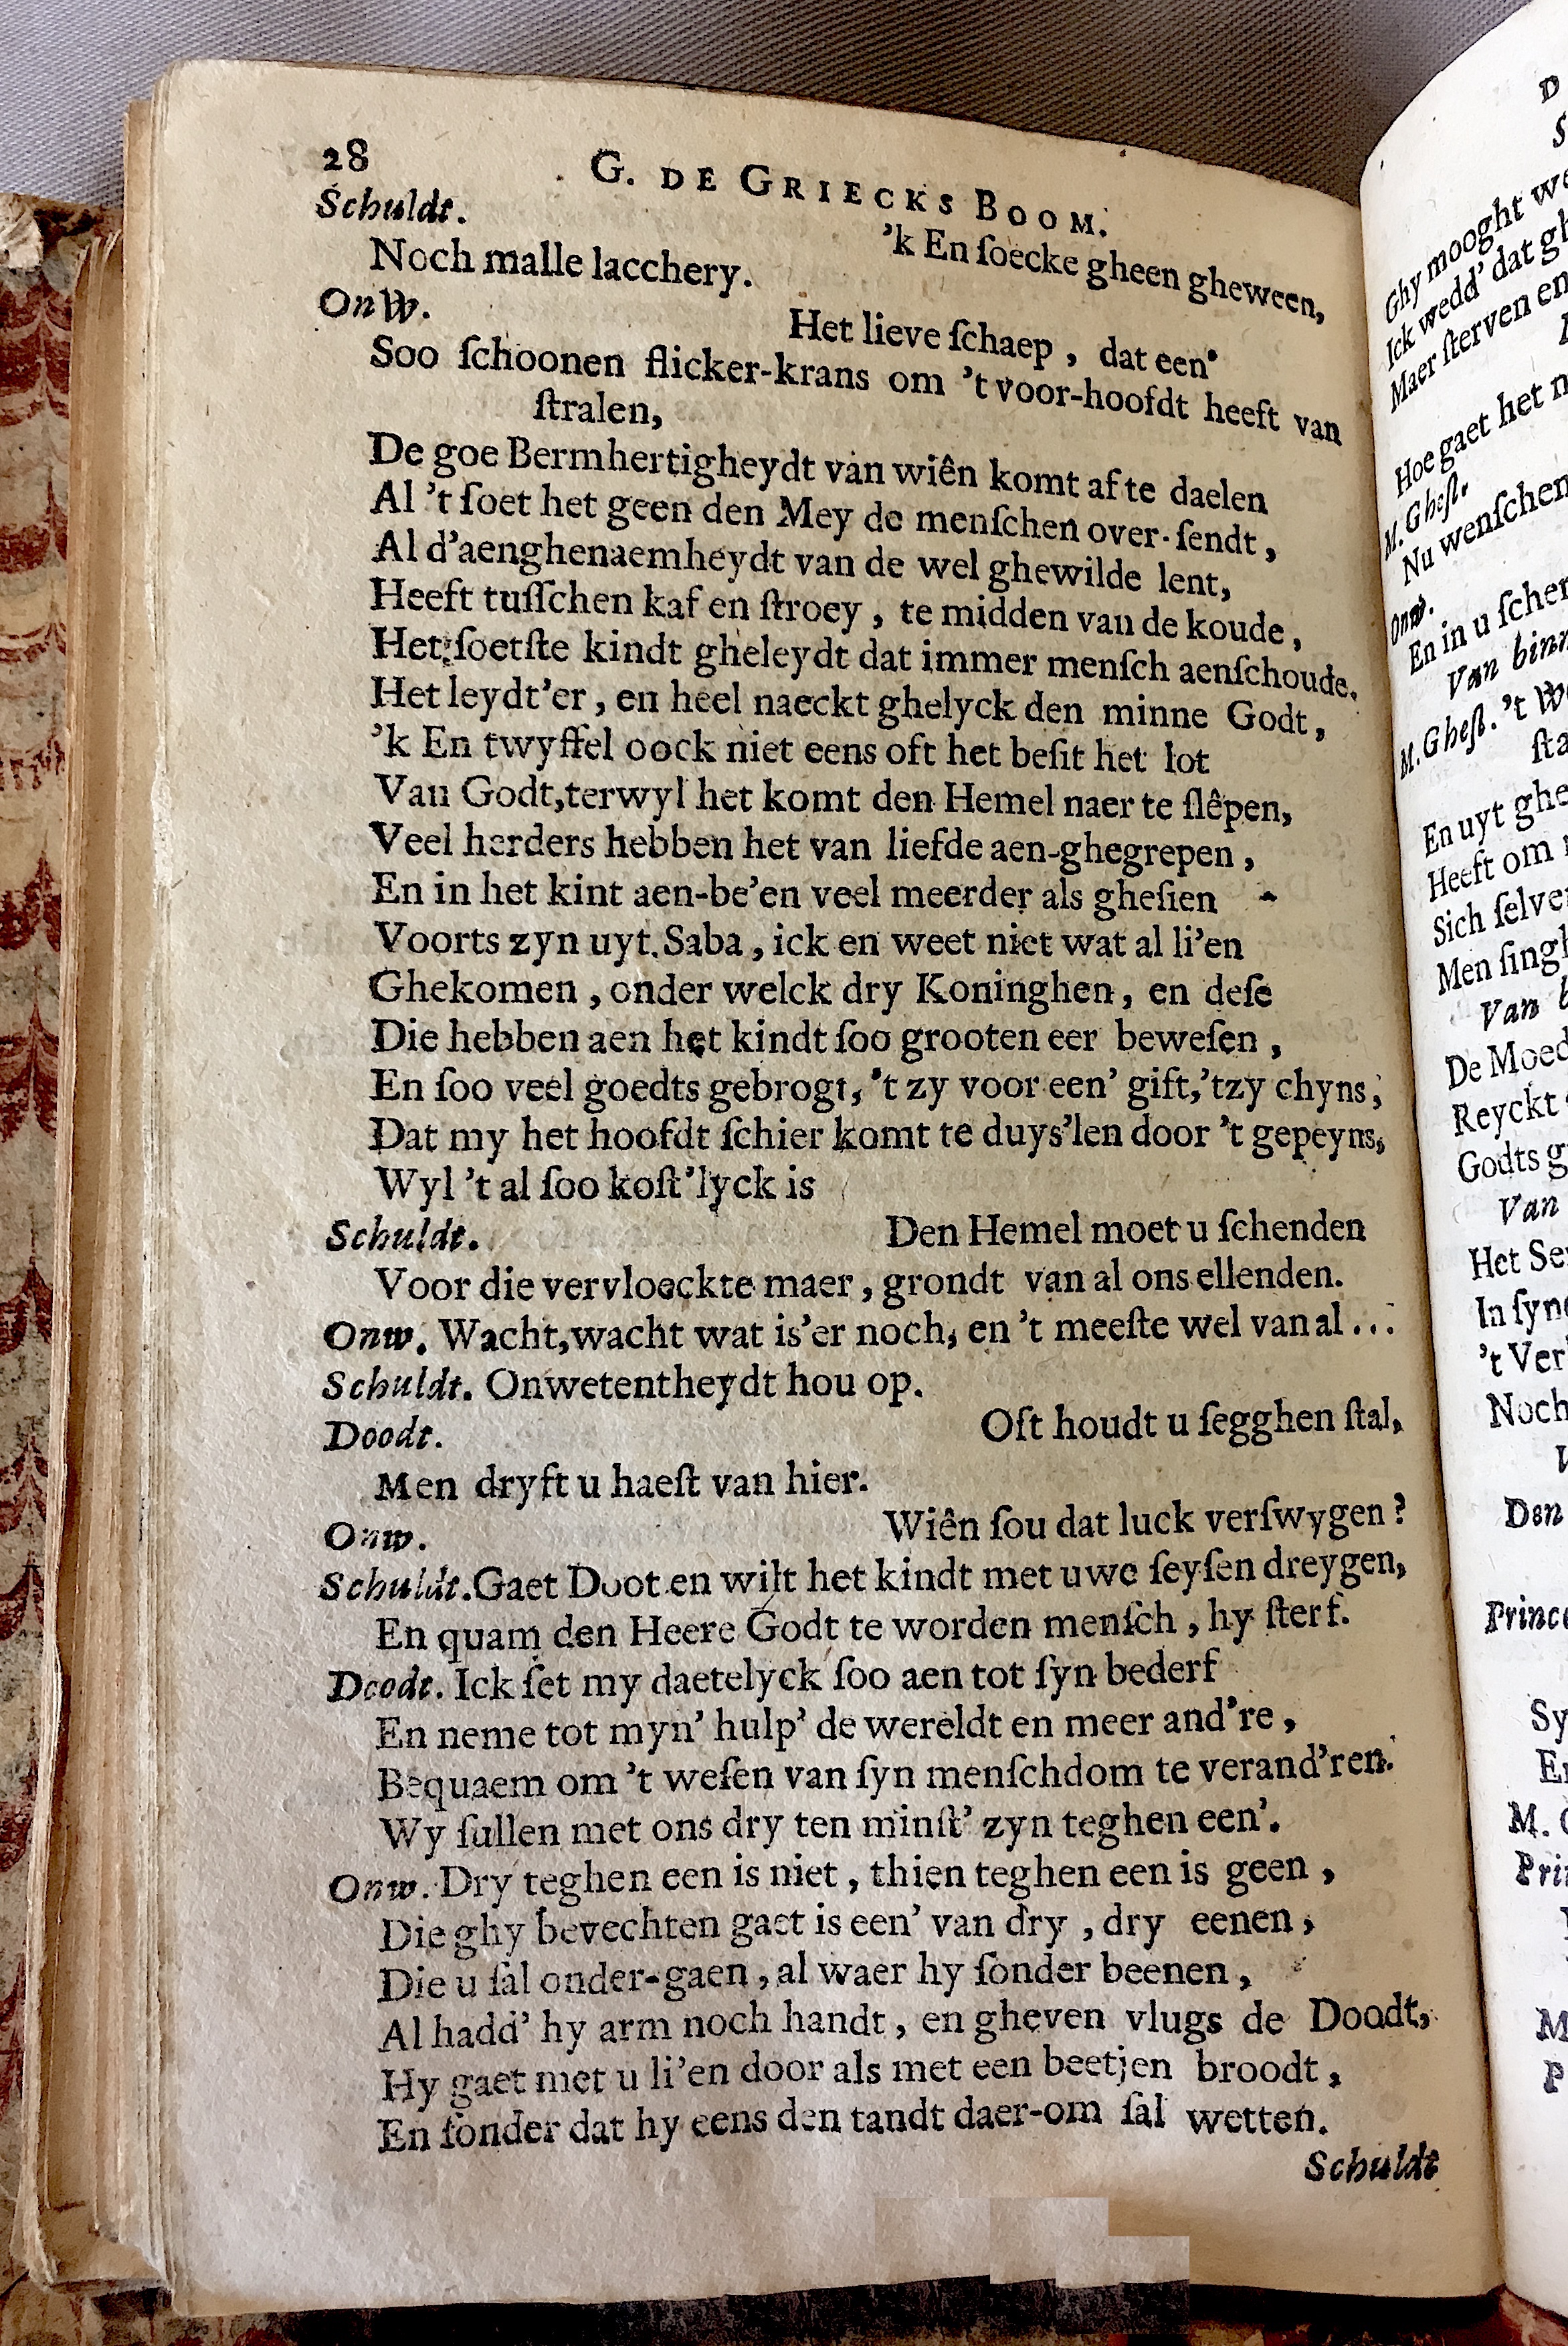 28 G. DE GRIECKS BOOM.
Schuldt. 'k En ſoecke gheen gheween,
Noch malle lacchery.
Onw. Het lieve ſchaep, dat een'
Soo ſchoonen flicker-krans om 't voor-hoofdt heeft van
ſtralen,
De goe Bermhertigheydt van wiên komt af te daelen
Al 't ſoet het geen den Mey de menſchen over-ſendt,
Al d'aenghenaemheydt van de wel ghewilde lent,
Heeft tuſſchen kaf en ſtroey, te midden van de koude,
Het ſoetſte kindt gheleydt dat immer menſch aenſchoude.
Het leydt'er, en heel naeckt ghelyck den minne Godt,
'k En twyffel oock niet eens oft het beſit het lot
Van Godt, terwyl het komt den Hemel naer te ſlêpen,
Veel herders hebben het van liefde aen-ghegrepen,
En in het kint aen-be'en veel meerder als gheſien
Voorts zyn uyt Saba, ick en weet niet wat al li'en
Ghekomen, onder welck dry Koninghen, en deſe
Die hebben aen het kindt ſoo grooten eer beweſen,
En ſoo veel goedts gebrogt, 't zy voor een' gift, 'tzy chyns,
Dat my het hoofdt ſchier komt te duys'len door 't gepeyns,
Wyl 't al ſoo koſt'lyck is
Schuldt. Den Hemel moet u ſchenden
Voor die vervloeckte maer, grondt van al ons ellenden.
Onw. Wacht, wacht wat is'er noch, en 't meeſte wel van al...
Schuldt. Onwetentheydt hou op.
Doodt. Oft houdt u ſegghen ſtal,
Men dryft u haeſt van hier.
Onw. Wiên ſou dat luck verſwygen?
Schuldt. Gaet Doot en wilt het kindt met uwe ſeyſen dreygen,
En quam den Heere Godt te worden menſch, hy ſterf.
Doodt. Ick ſet my daetelyck ſoo aen tot ſyn bederf
En neme tot myn' hulp' de wereldt en meer and're,
Bequaem om 't weſen van ſyn menſchdom te verand'ren.
Wy ſullen met ons dry ten minſt' zyn teghen een'.
Onw. Dry teghen een is niet, thien teghen een is geen,
Die ghy bevechten gaet is een' van dry, dry eenen,
Die u ſal onder-gaen, al waer hy ſonder beenen,
Al hadd' hy arm noch handt, en gheven vlugs de Doodt,
Hy gaet met u li'en door als met een beetjen broodt,
En ſonder dat hy eens den tandt daer-om ſal wetten.
Schuldt
Ghy mooght
Ick wedd' dat
Maer ſterven
Hoe gaet het
M. Gheſt.
Nu wenſchen
Onw.
En in u
Van
M. Gheſt. 't
En uyt
Heeft om
Sich
Men
Van
De
Reyckt
Godts
Van
Het
In
't
Noch
Den
M.